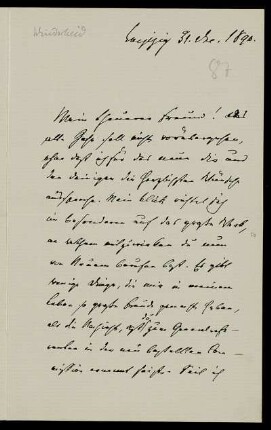 Windscheid
Leipzig 31. Dec. 1890.
87
Mein theurer Freund! Das
alte Jahr soll nicht vorübergehen,
ohne daß ich für das neue dir und
den deinigen die herzlichsten Wünsche
ausspreche. Mein Blick richtet sich
in besonderem auf das große Werk,
an welchem mitzuwirken du nun
von Neuem berufen bist. Es gibt
wenige Dinge, die mir in meinem
Leben so große Freude gemacht haben,
als die Nachricht, daß du zum Generalrefe-
renten in der neu bestellten Com-
mission ernannt seist. Weil ich